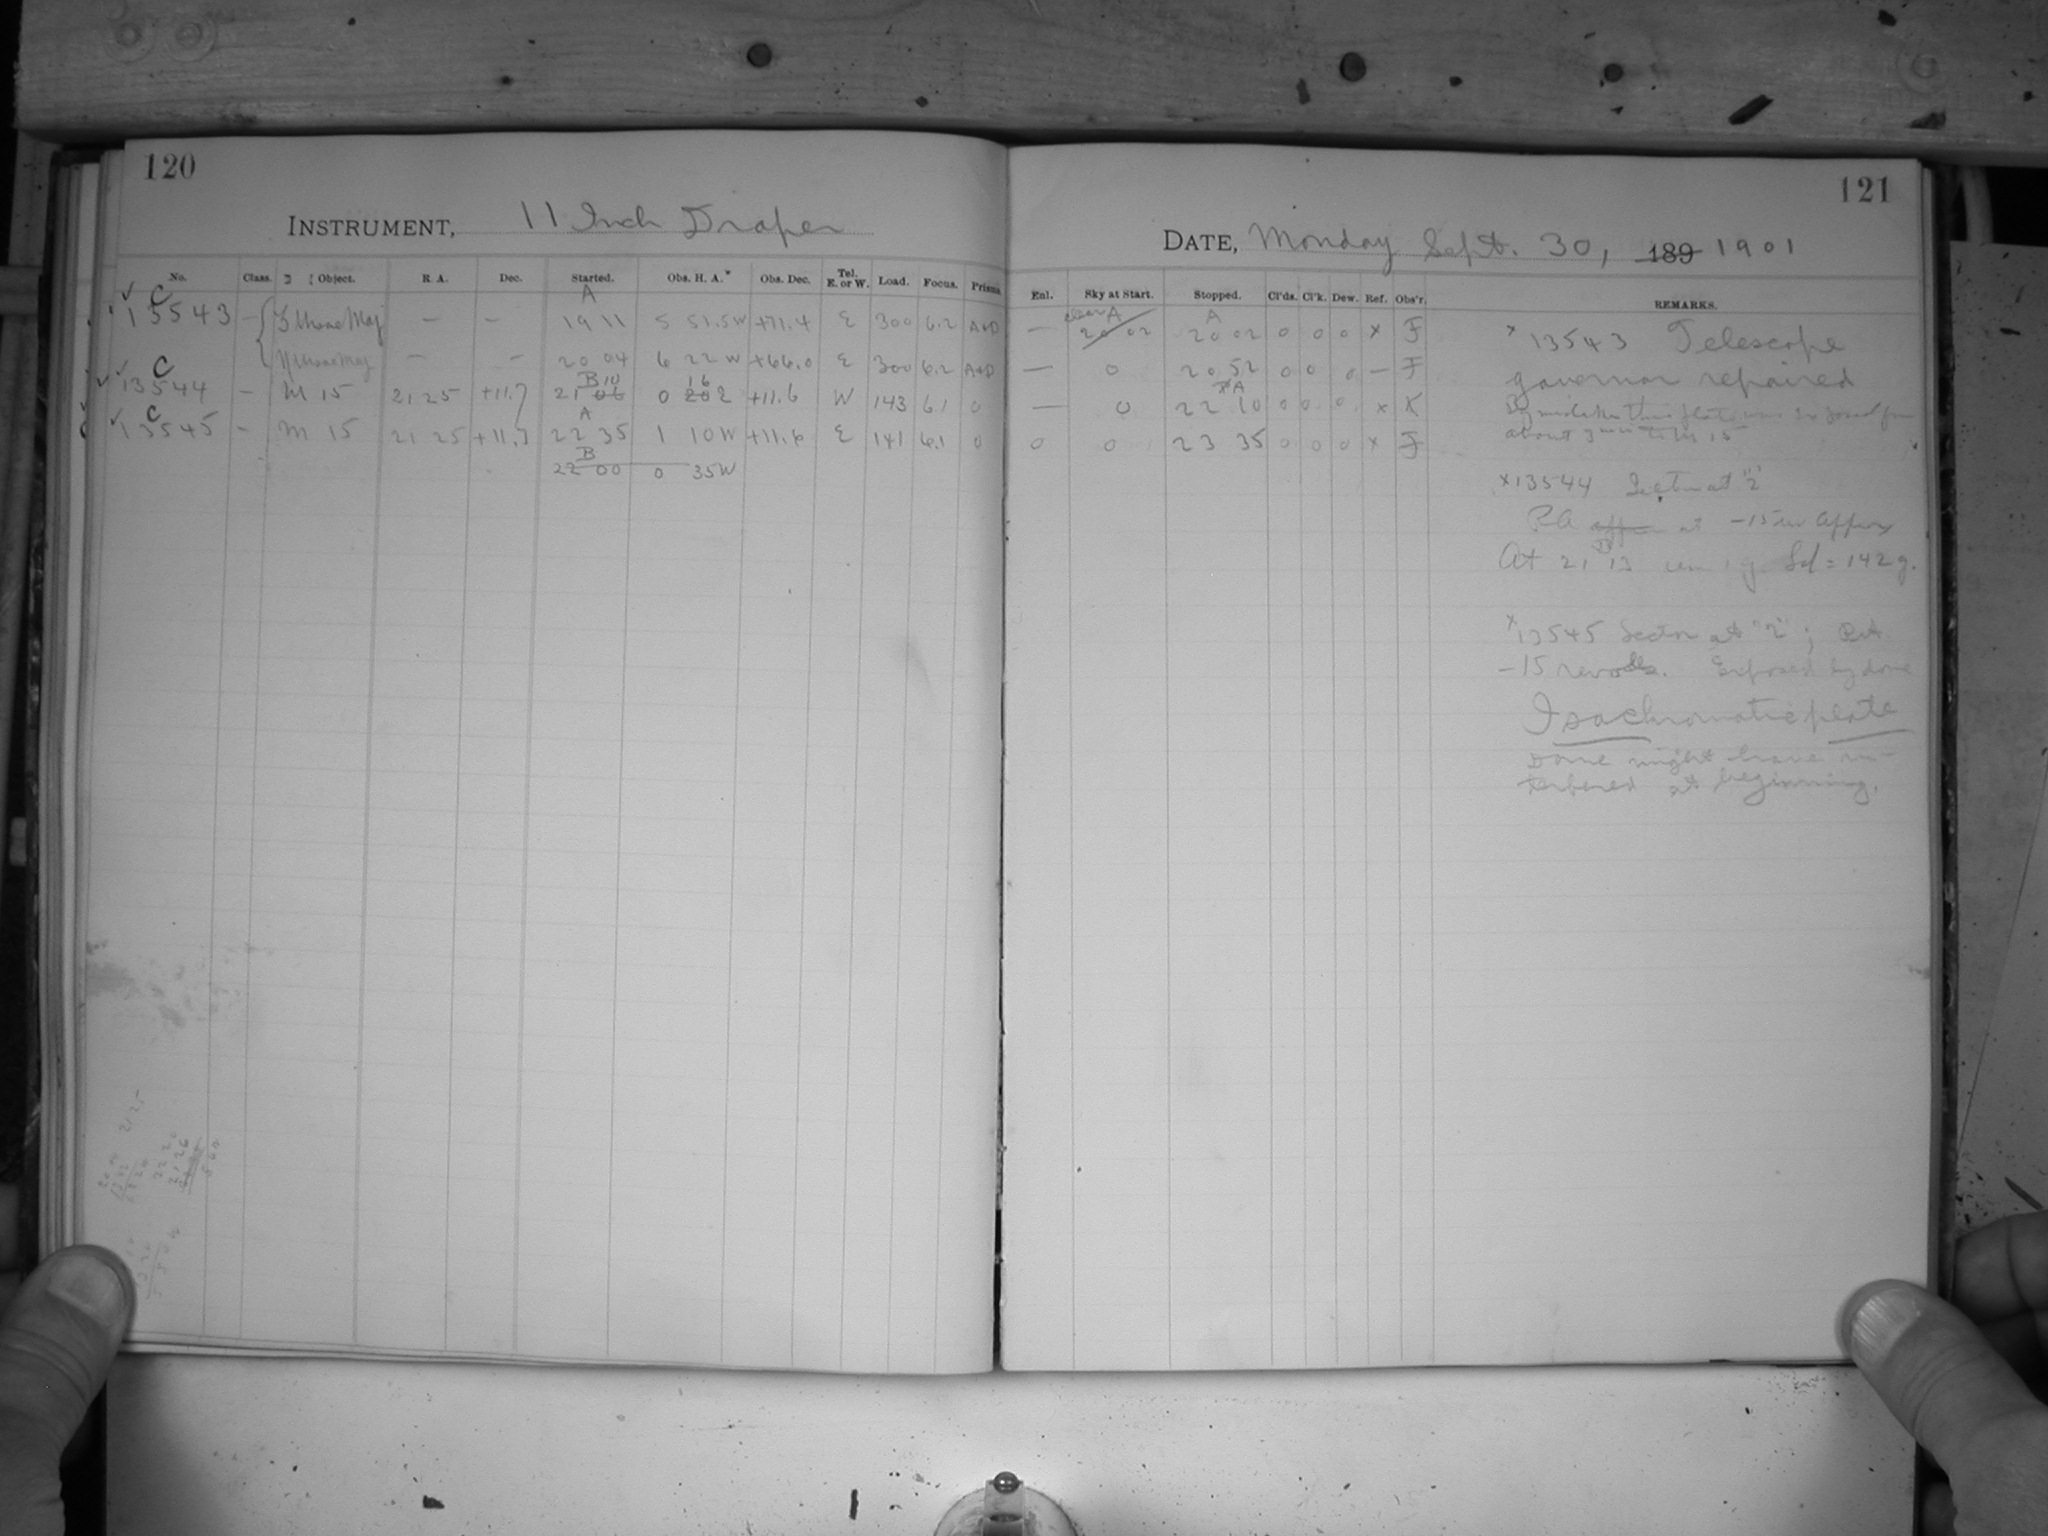 120
INSTRUMENT, 11 Inch Draper
No. Class. Object. R. A. Dec. Started. Obs. H. A. Obs. Dec. Tel. E. or W. Load. Focus. Prisms
A
C 13543 — — — 19 11 5 51.5 W +71.4 E 300 6.2 A+D
— — 20 04 6 22 W +66.0 E 300 6.2 A+D
B 10 16
C 13544 — M 15 21 25 +11.7 21 06 0 202 +11.6 W 143 6.1 0
A
C 13545 — M 15 21 25 +11.7 22 35 1 10 W +11.6 E 141 6.1 0
B
22 00 0 35 W
21 25
121
DATE, Monday Sept. 30, 189 1901
Enl. Sky at Start. Stopped. Cl'ds. Cl'k. Dew. Ref. Obs'r. REMARKS.
clear A A
— 20 02 20 02 0 0 0 x F
— 0 20 52 0 0 0 — F
A
— 0 22 10 0 0 0 x K
0 0 23 35 0 0 0 x F
x 13543 Telescope
governor repaired
By mistake this plate was
about to M 15
x 13544 Sector at "2"
at -15 rev approx
At 21 13 1 g. Ld = 142 g.
x 13545 Sector at "2";
-15 revolts. Exposed by dome
Isochromatic plate
Dome might have in-
terfered at beginning.